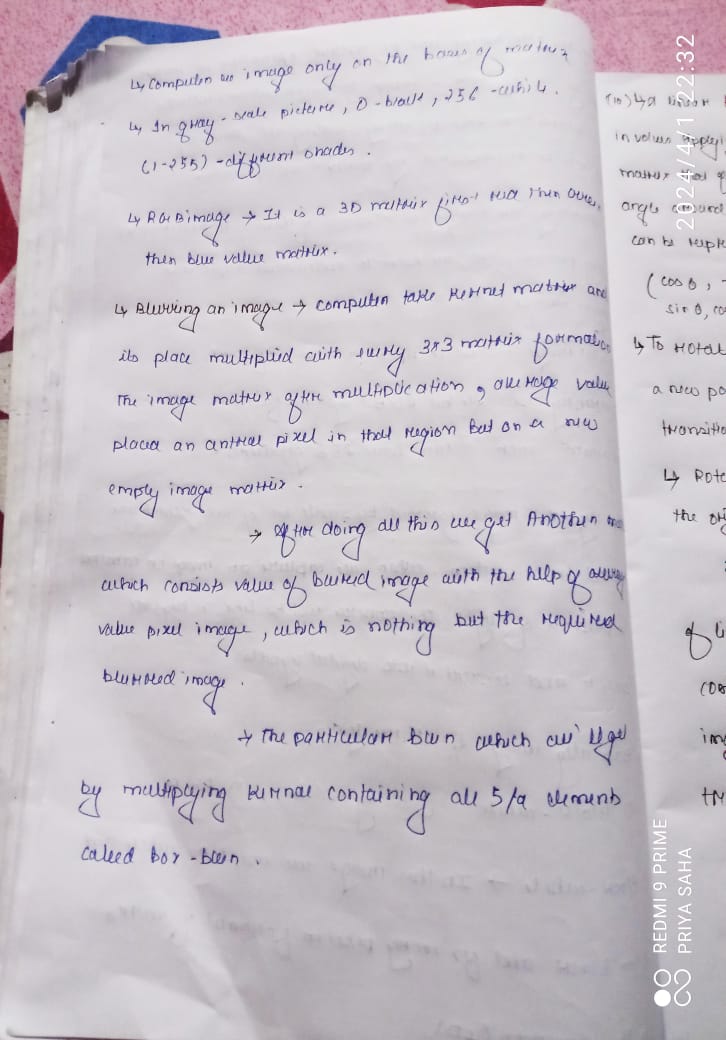 ↳ Computer see image only on the bases of matrix
↳ In gray-scale picture, 0-black, 256-white.
(1-255)-different shades.
↳ RGB image → It is a 3D matrix first red then
then blue value matrix.
↳ Blurring an image → computer take kernel matrix and
its place multiplied with every 3x3 matrix
The image matrix after multiplication, average value
placed an central pixel in that region But on a new
empty image matrix.
→ after doing all this we get Another
which consists value of blured image with the help of
value pixel image, which is nothing but the required
blurred image.
→ The particular blur which
by multiplying kurnal containing all 5/9 elements
called box-blur.
(10) ↳ a
involves
matrix
angle around
can be
(cos θ, -
sin θ,
↳ To
a new
↳
the
2024/4/1 22:32
REDMI 9 PRIME
PRIYA SAHA